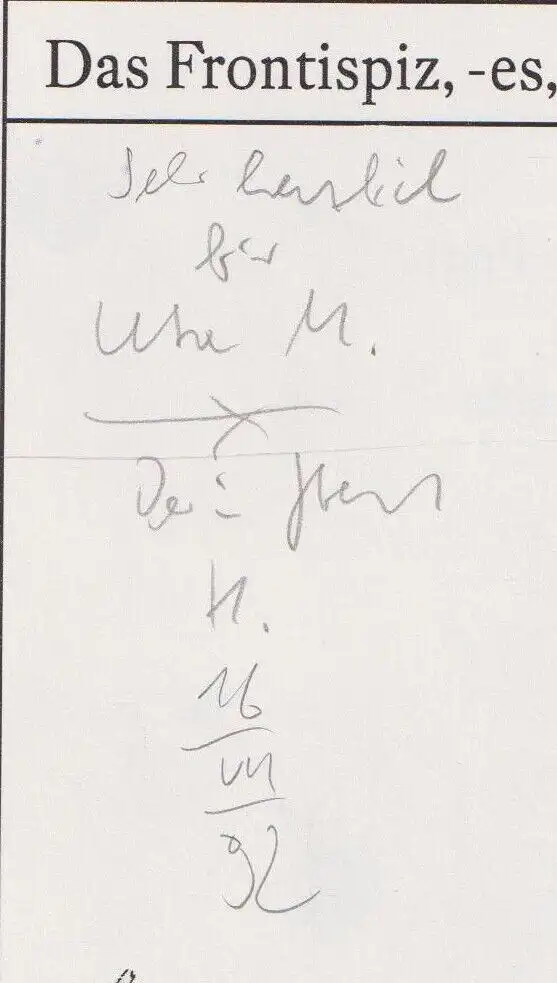 Das Frontispiz, -es,
Sehr herzlich
für
Uta M.
Dein
H.
16
VII
92